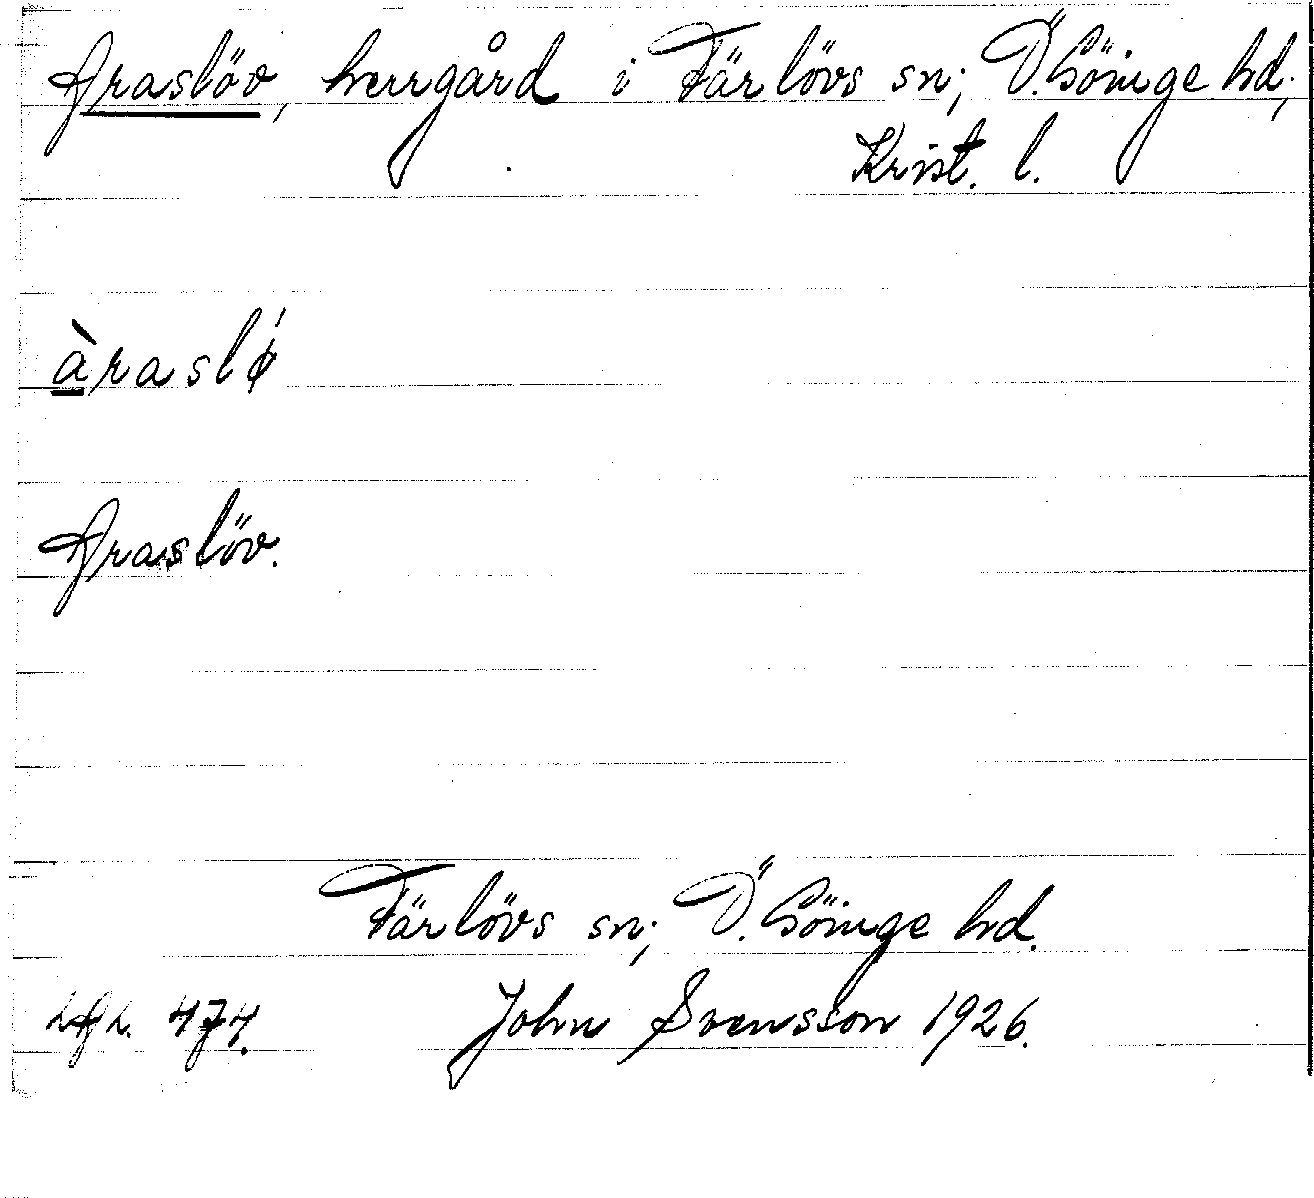 Araslöv, herrgård i Färlövs sn; Ö. Göinge hd,
Krist. l.
àraslǿ
Araslöv.
Färlövs sn; Ö. Göinge hd.
LAL. 474. John Svensson 1926.